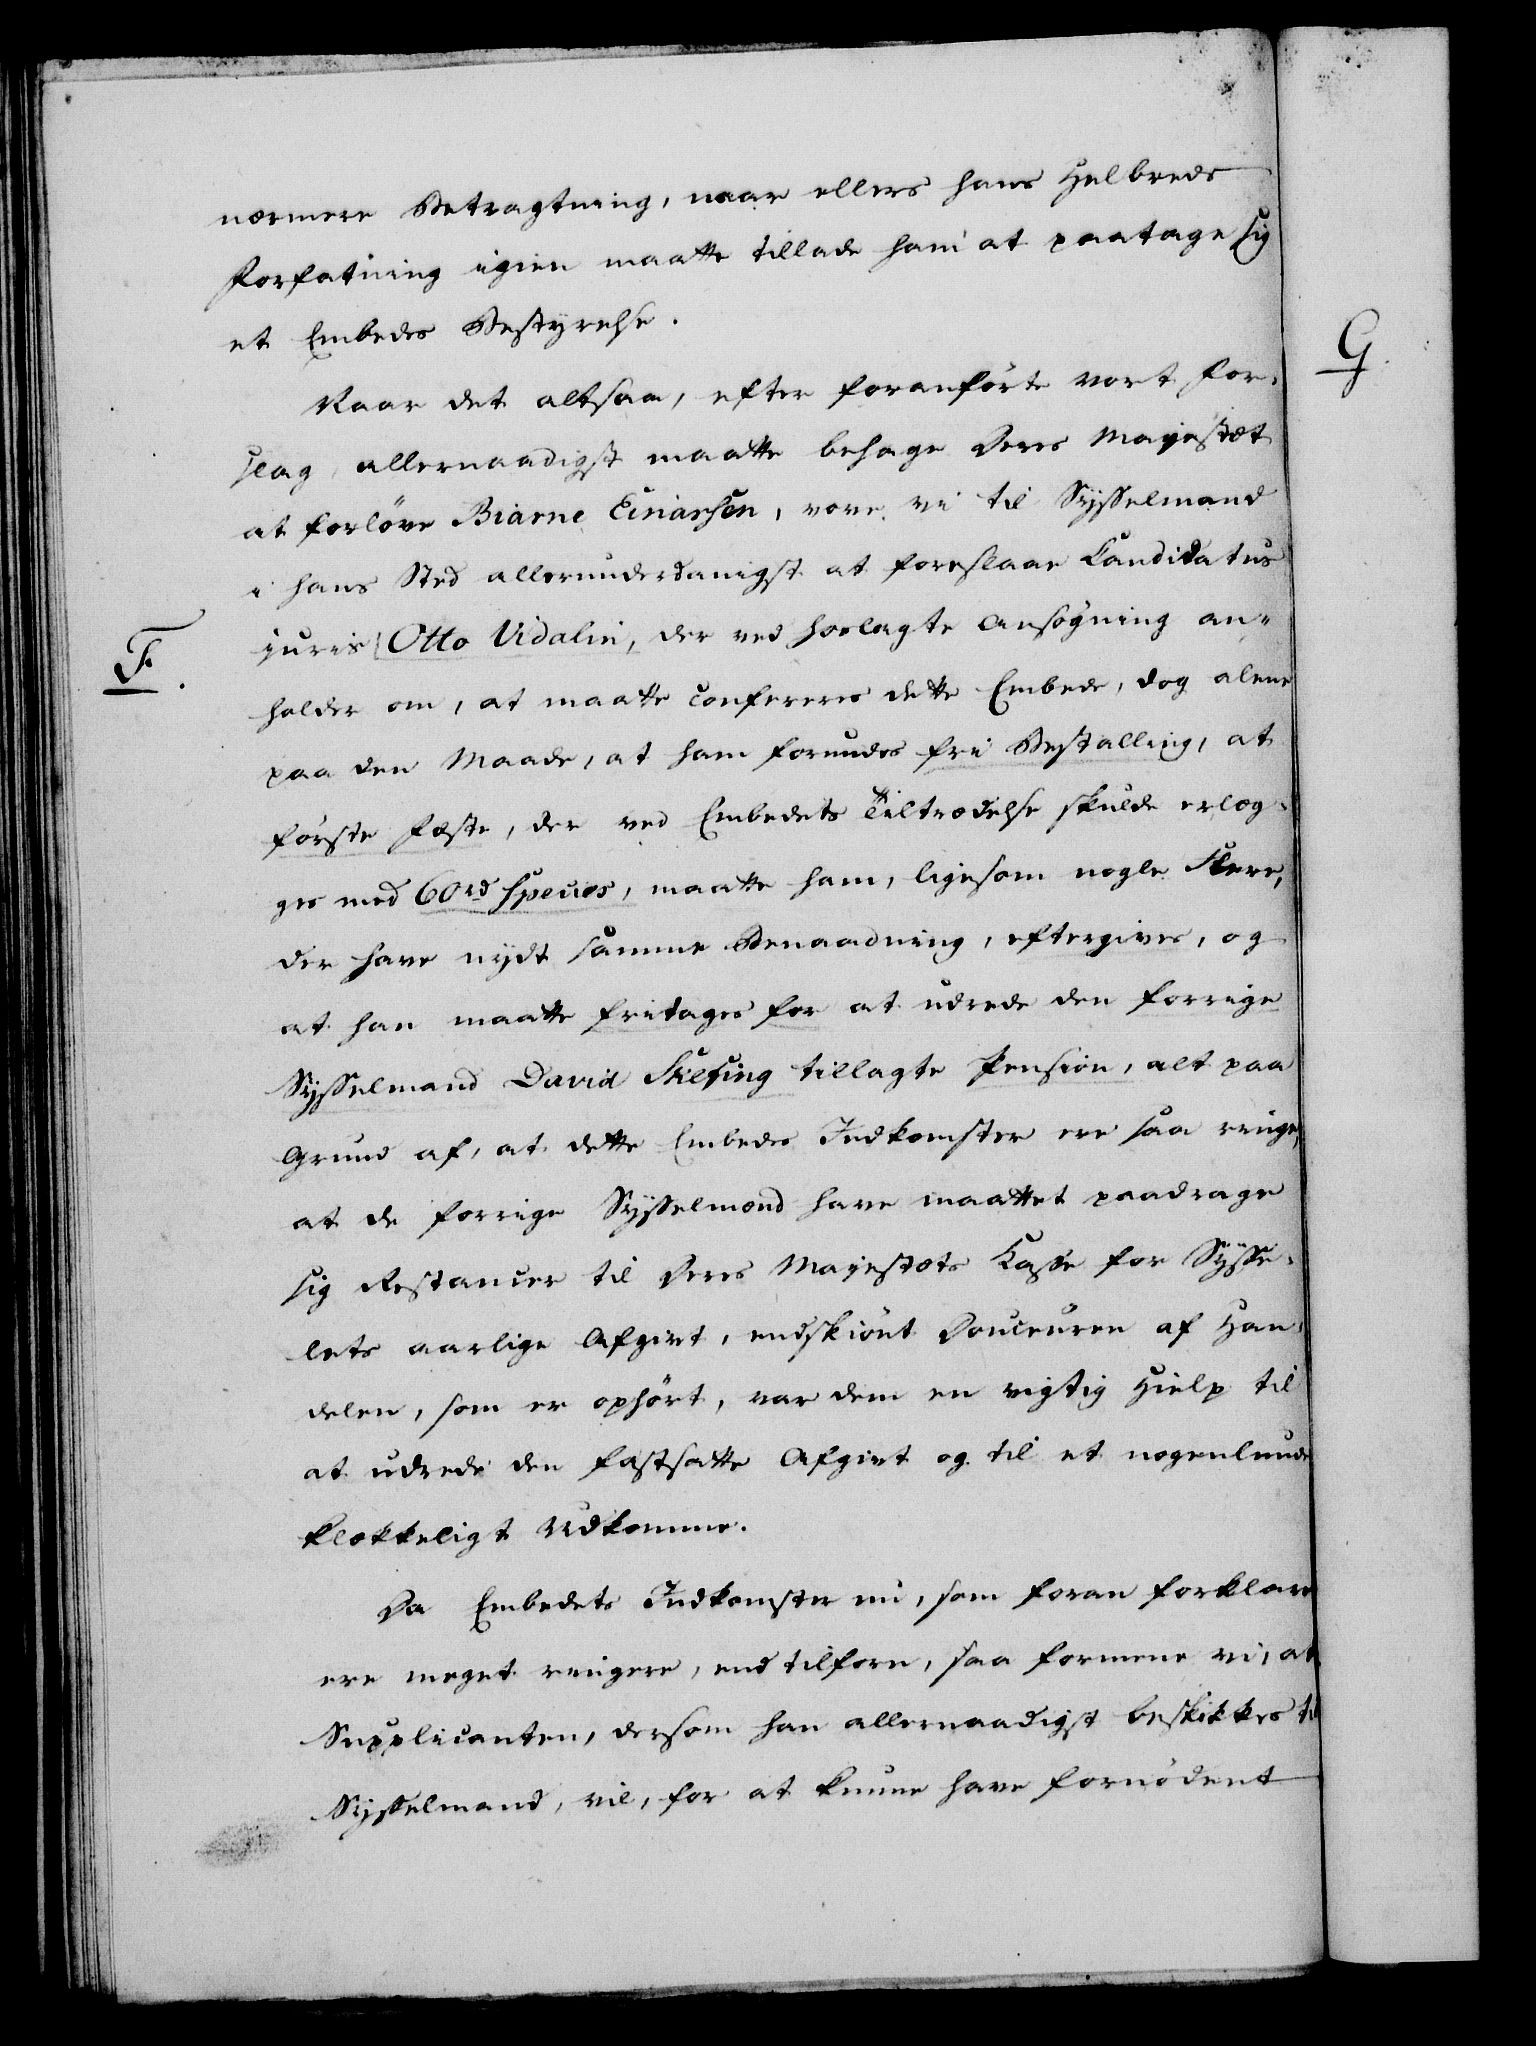 nærmere Betragtning, naar ellers hans Helbreds
Forfatning igien maatte tillade ham at paatage sig
et Embedes Bestyrelse.
G.
Naar det altsaa, efter foranförte vort For-
slag, allernaadigst maatte behage Deres Majestæt
at forlöve Biarne Einarsen, vove vi til Sysselmand
i hans Sted allerunderdanigst at foreslaae Candidatus
F.
juris Otto Vidalin, der ved hoslagte Ansögning an-
holder om, at maatte confereres dette Embede, dog alene
paa den Maade, at ham forundes fri Bestalling, at
förste Fæste, der ved Embedets Tiltrædelse skulde erlæg-
ges med 60 rd Species, maatte ham, ligesom nogle Flere,
der have nydt samme Benaadning, eftergives, og
at han maatte fritages for at udrede den forrige
Sysselmand David Skefing tillagte Pension, alt paa
Grund af, at dette Embedes Indkomster ere saa ringe,
at de forrige Sysselmænd have maattet paadrage
sig Restancer til Deres Majestæts Kasse for Sysse-
lets aarlige Afgivt, endskiönt Douceuren af Han-
delen, som er ophört, var dem en vigtig Hielp til
at udrede den fastsatte Afgivt og til et nogenlunde
klækkeligt Udkomme.
Da Embedets Indkomster nu, som foran forklaret
ere meget ringere, end tilforn, saa formene vi, at
Supplicanten, dersom han allernaadigst beskikkes til
Sysselmand, vil, for at kunne have fornödent